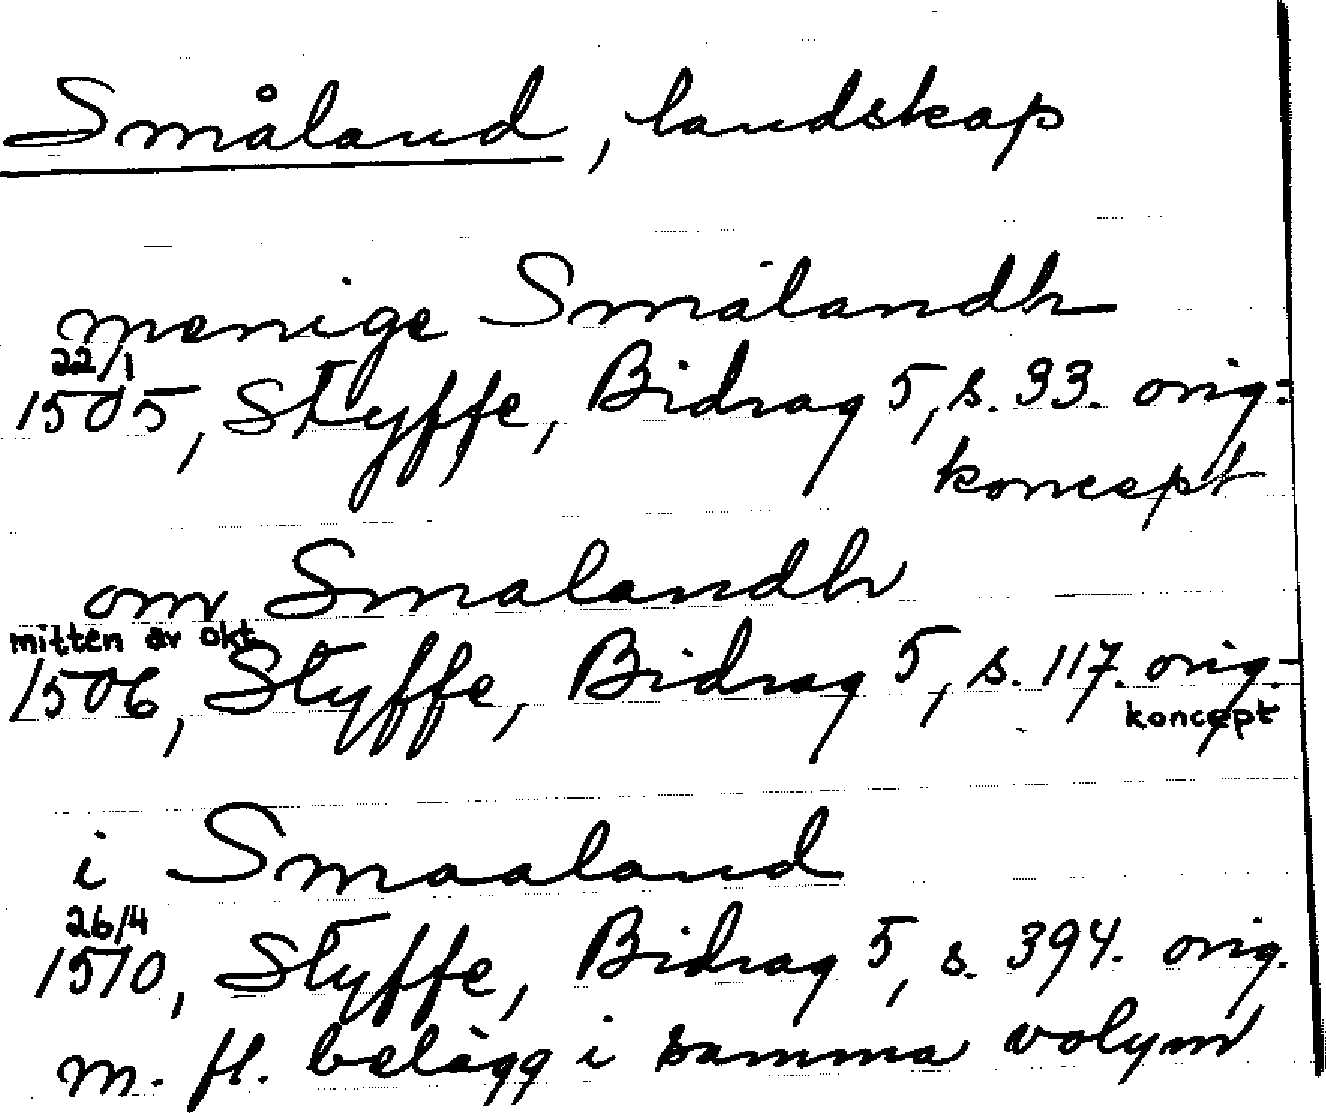 Småland, landskap
menige Smålandh
22/1
1505, Styffe, Bidrag 5, s. 33. orig.-
koncept
om Smalandh
mitten av okt.
1506, Styffe, Bidrag 5, s. 117. orig.-
koncept
i Smaaland
26/4
1510, Styffe, Bidrag 5, s. 394. orig.
m. fl. belägg i samma volym